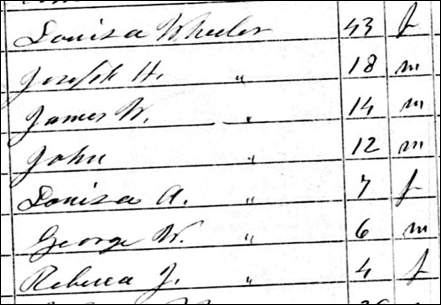 Louisa Wheeler 43 f
Joseph H. " 18 m
James W. " 14 m
John " 12 m
Louisa A. " 7 f
George W. " 6 m
Rebecca J. " 4 f